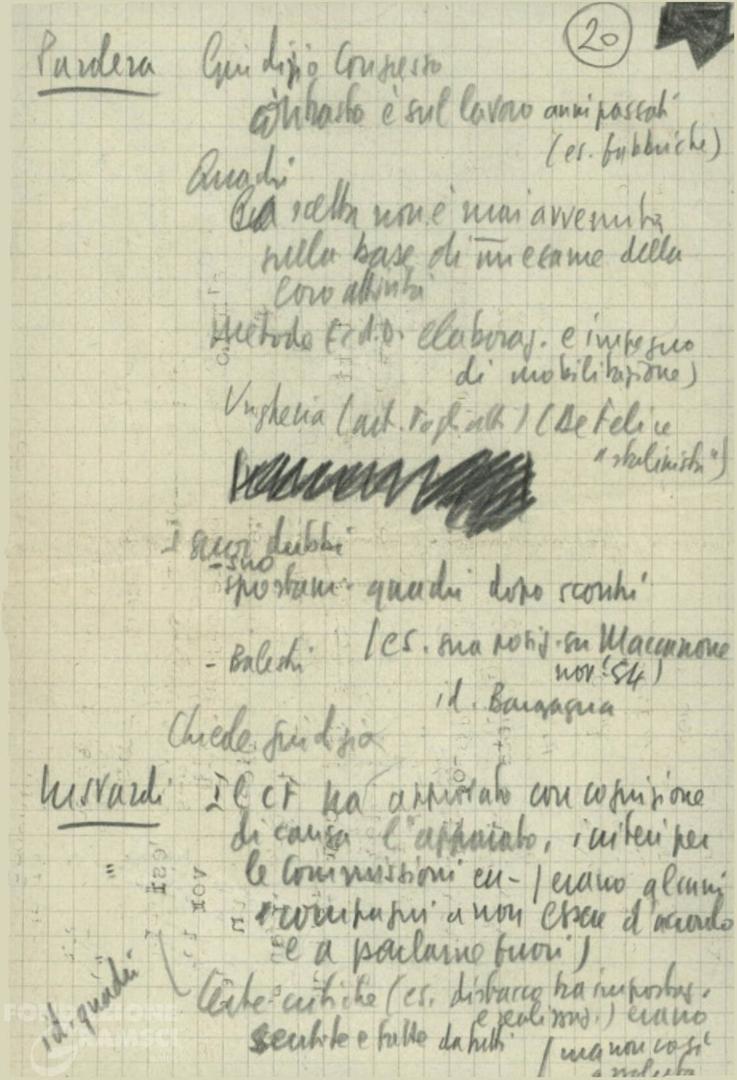 20
Giudizio Congresso
contrasto è sul lavoro anni passati
(es. fabbriche)
Quadri
La scelta non è mai avvenuta
sulla base di un esame della
loro attività
Metodo elaboraz. e impegno
di mobilitazione)
Ungheria (art. Togliatti) (De Felice
"stalinista")
I suoi dubbi
- suo
spostam. quadri dopo scontri
(es. sua posiz. su Maccarrone
nov. '54)
- Balestri
id. Barzagna
Chiede giudizio
Il CF ha approvato con cognizione
di causa l'apparato, i criteri per
le Commissioni ecc- (erano alcuni
compagni a non essere d'accordo
e a parlarne fuori)
id. quadri
Certe critiche (es. distacco tra impostaz.
e realizzaz.) erano
sentite e fatte da tutti
(ma non così
FONDAZIONE
GRAMSCI